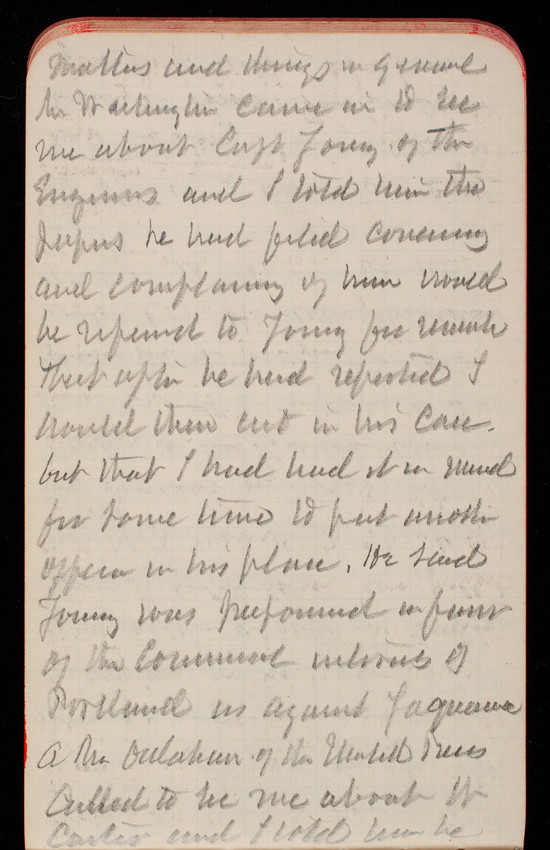 matters and things in general
Mr Washington came in to see
me about Capt Young of the
Engineers and I told him the
papers he had filed concerning
and complaining of him would
be referred to Young for remark
That after he had reported I
would then act in his case.
but that I had had it in mind
for some time to put another
officer in his place. He said
Young was prejudiced in favor
of the Commercial interests of
Portland as against Yaquina
A Mr of the United Press
Called to see me about
Carter and I told him he